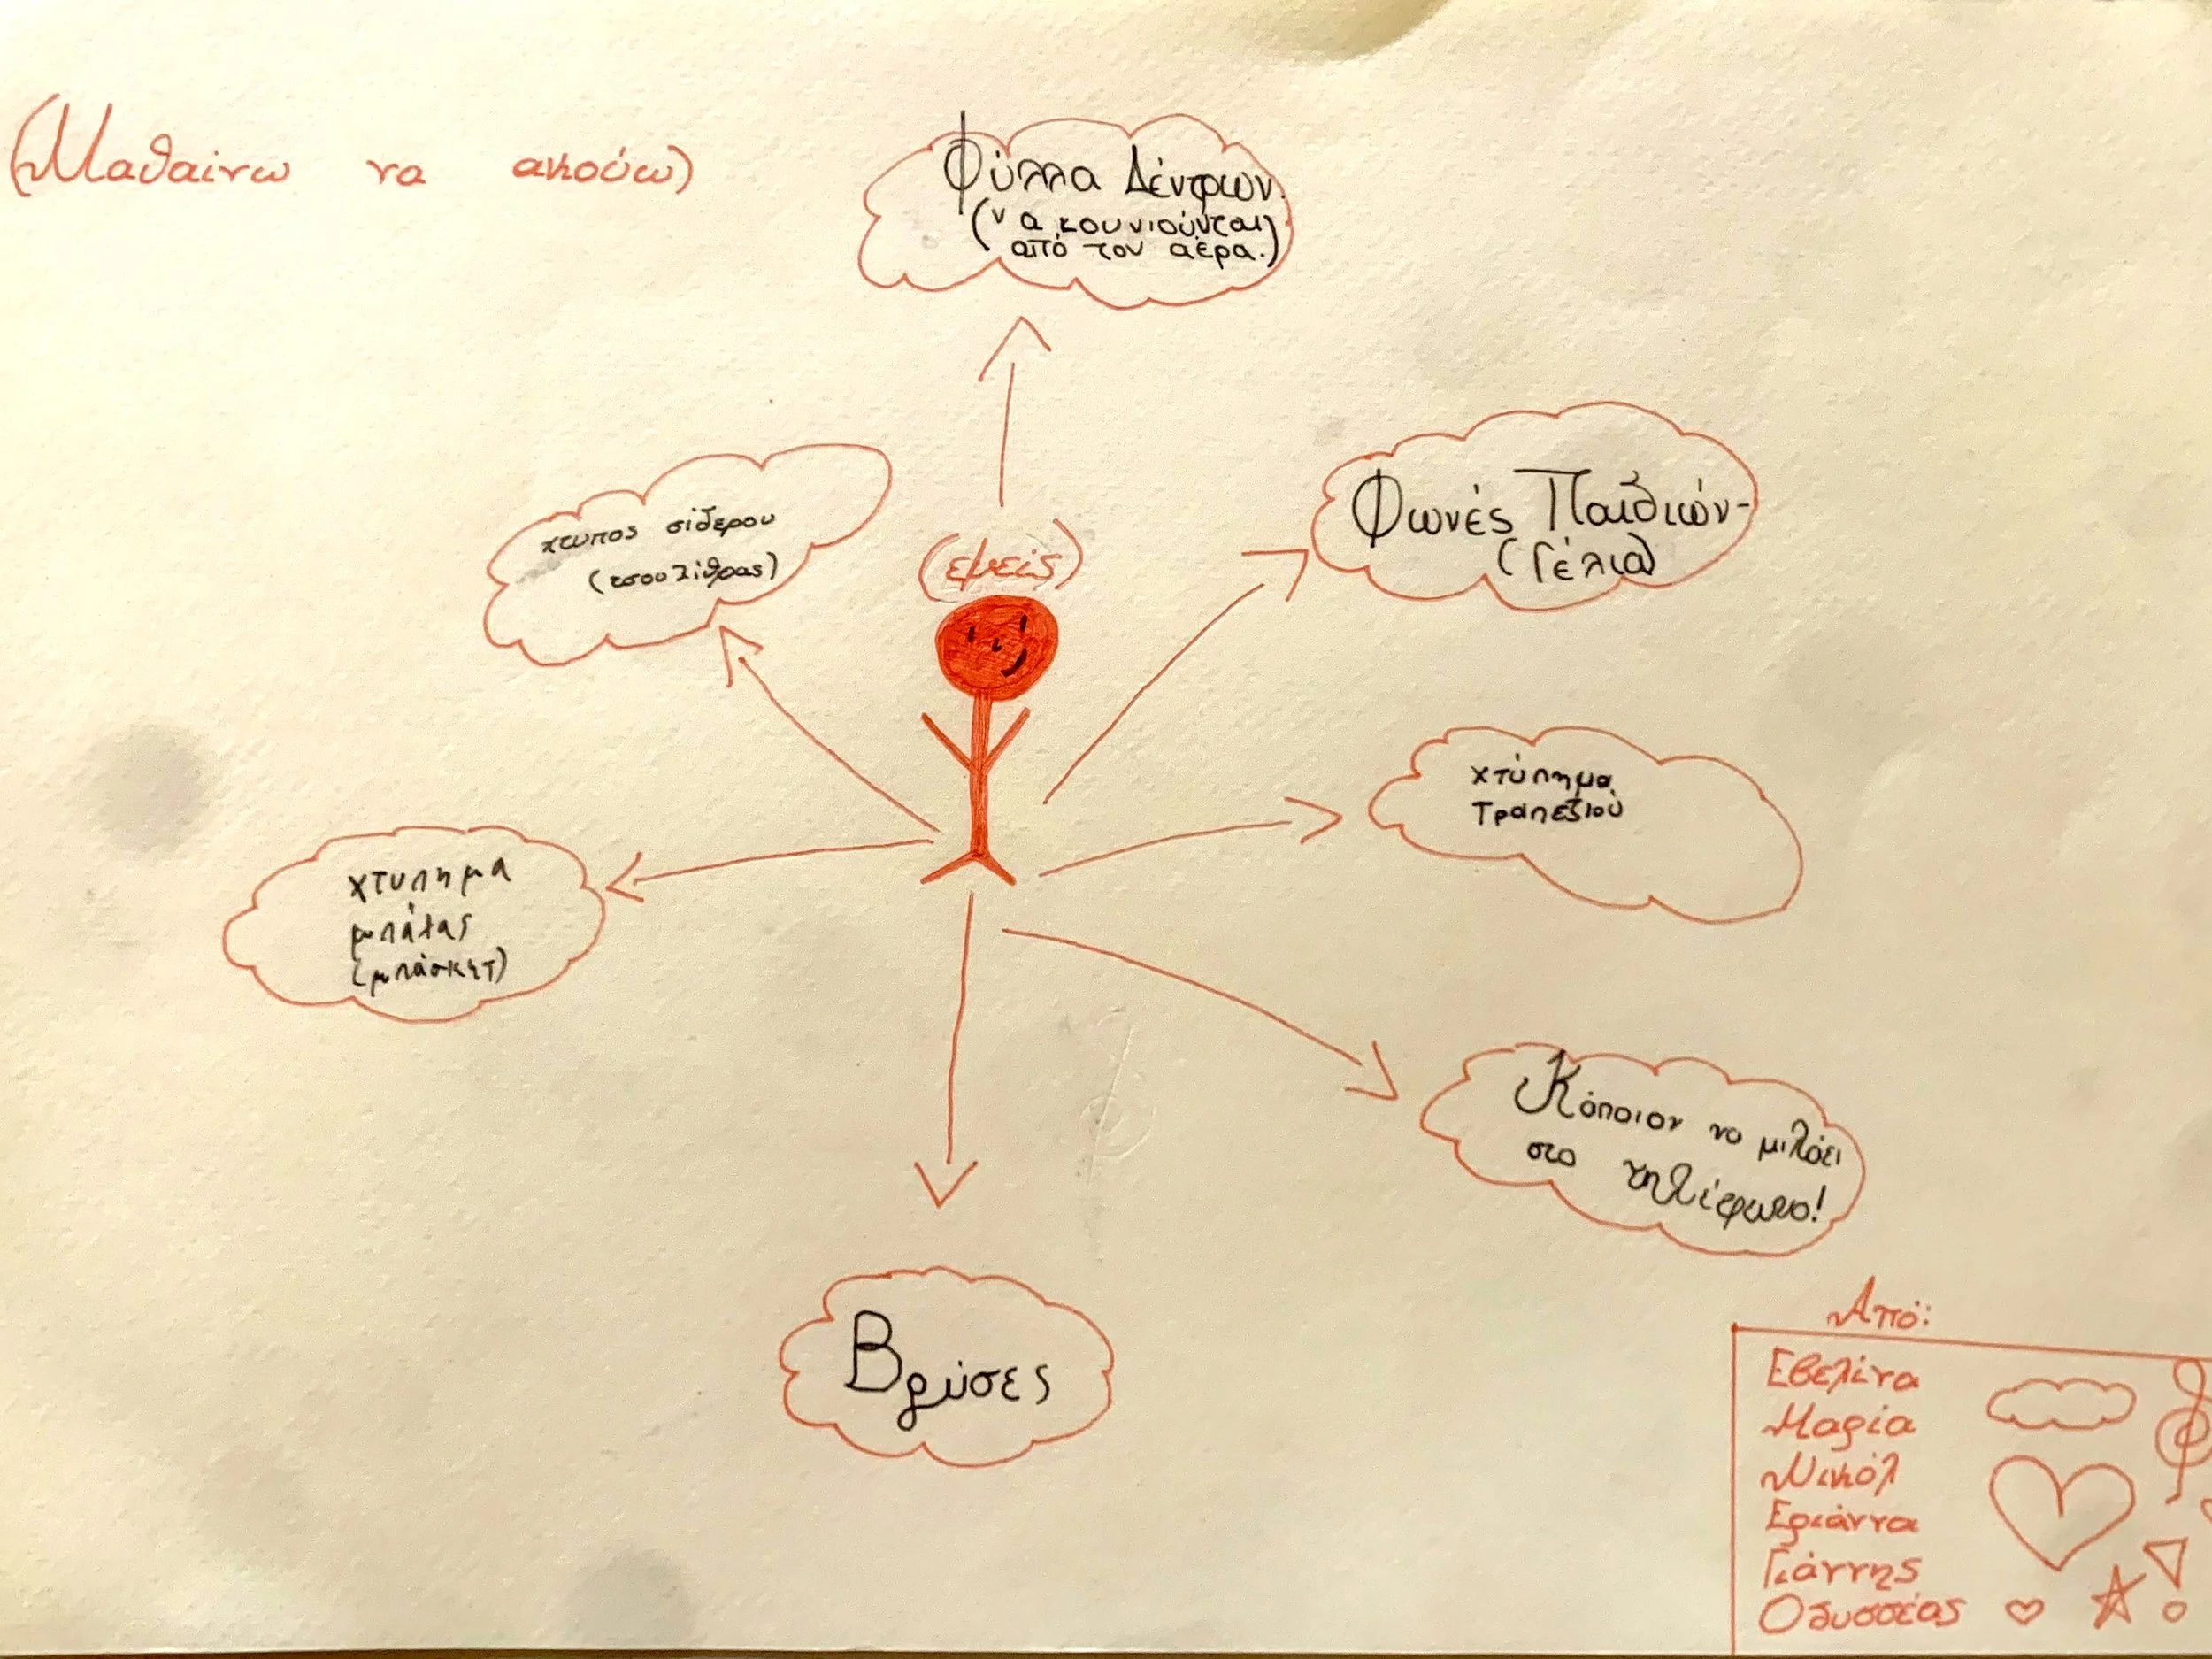 (Μαθαίνω να ακούω)
Φύλλα Δέντρων.
(να κουνιούνται
από τον αέρα.)
χτυπος σίδερου
(τσουλίθρας)
(εμείς)
Φωνές Παιδιών-
(Γέλια)
χτύπημα
Τραπεζιού
χτυπημα
μπάλας
(μπάσκετ)
Κάποιον να μιλάει
στο τηλέφωνο!
Βρύσες
Από:
Εβελίνα
Μαρία
Νικόλ
Εριάννα
Γιάννης
Οδυσσέας